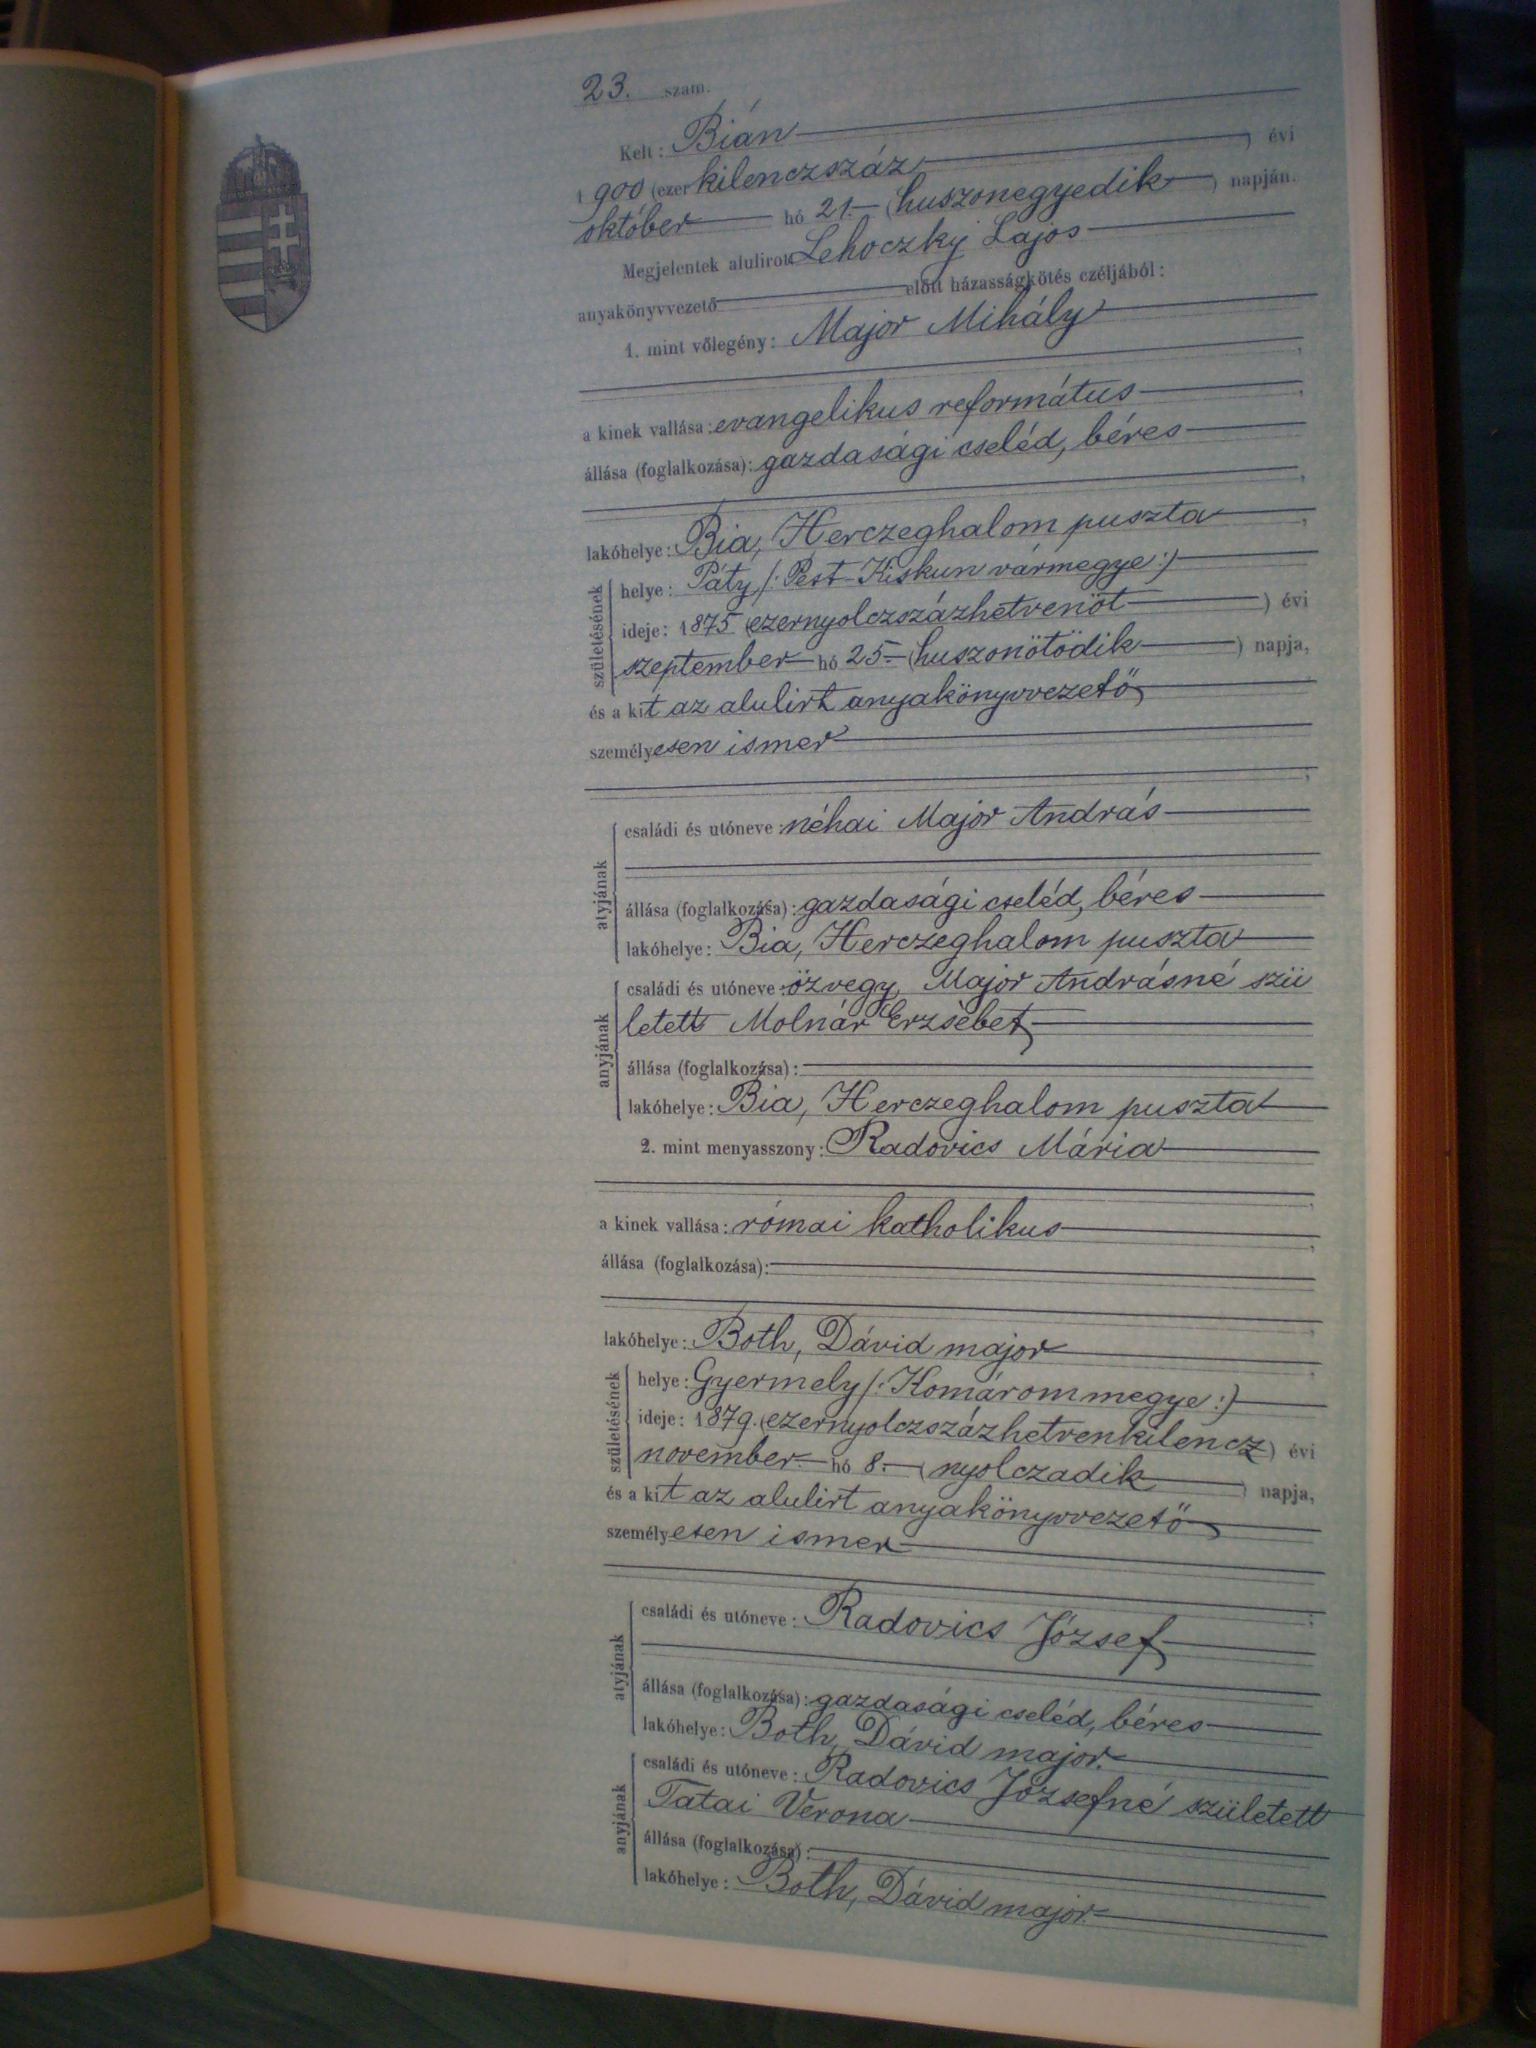 23. szám.
Kelt: Bián
1900 (ezerkilenczszáz) évi
október hó 21. (huszonegyedik) napján.
Megjelentek alulirott Lehoczky Lajos
anyakönyvvezető előtt házasságkötés czéljából:
1. mint vőlegény: Major Mihály
a kinek vallása: evangelikus református
állása (foglalkozása): gazdasági cseléd, béres
lakóhelye: Bia, Herczeghalom puszta
születésének
helye: Páty /: Pest-Kiskun vármegye :/
ideje: 1875 (ezernyolczszázhetvenöt) évi
szeptember hó 25. (huszonötödik) napja,
és a kit az alulirt anyakönyvvezető
személyesen ismer
atyjának
családi és utóneve: néhai Major András
állása (foglalkozása): gazdasági cseléd, béres
lakóhelye: Bia, Herczeghalom puszta
anyjának
családi és utóneve: özvegy Major Andrásné szü
letett Molnár Erzsébet
állása (foglalkozása):
lakóhelye: Bia, Herczeghalom puszta
2. mint menyasszony: Radovics Mária
a kinek vallása: római katholikus
állása (foglalkozása):
lakóhelye: Both, Dávid major
születésének
helye: Gyermely /: Komárommegye :/
ideje: 1879. (ezernyolczszázhetvenkilencz) évi
november hó 8. (nyolczadik) napja,
és a kit az alulirt anyakönyvvezető
személyesen ismer
atyjának
családi és utóneve: Radovics József
állása (foglalkozása): gazdasági cseléd, béres
lakóhelye: Both, Dávid major.
anyjának
családi és utóneve: Radovics Józsefné született
Tatai Verona
állása (foglalkozása):
lakóhelye: Both, Dávid major.